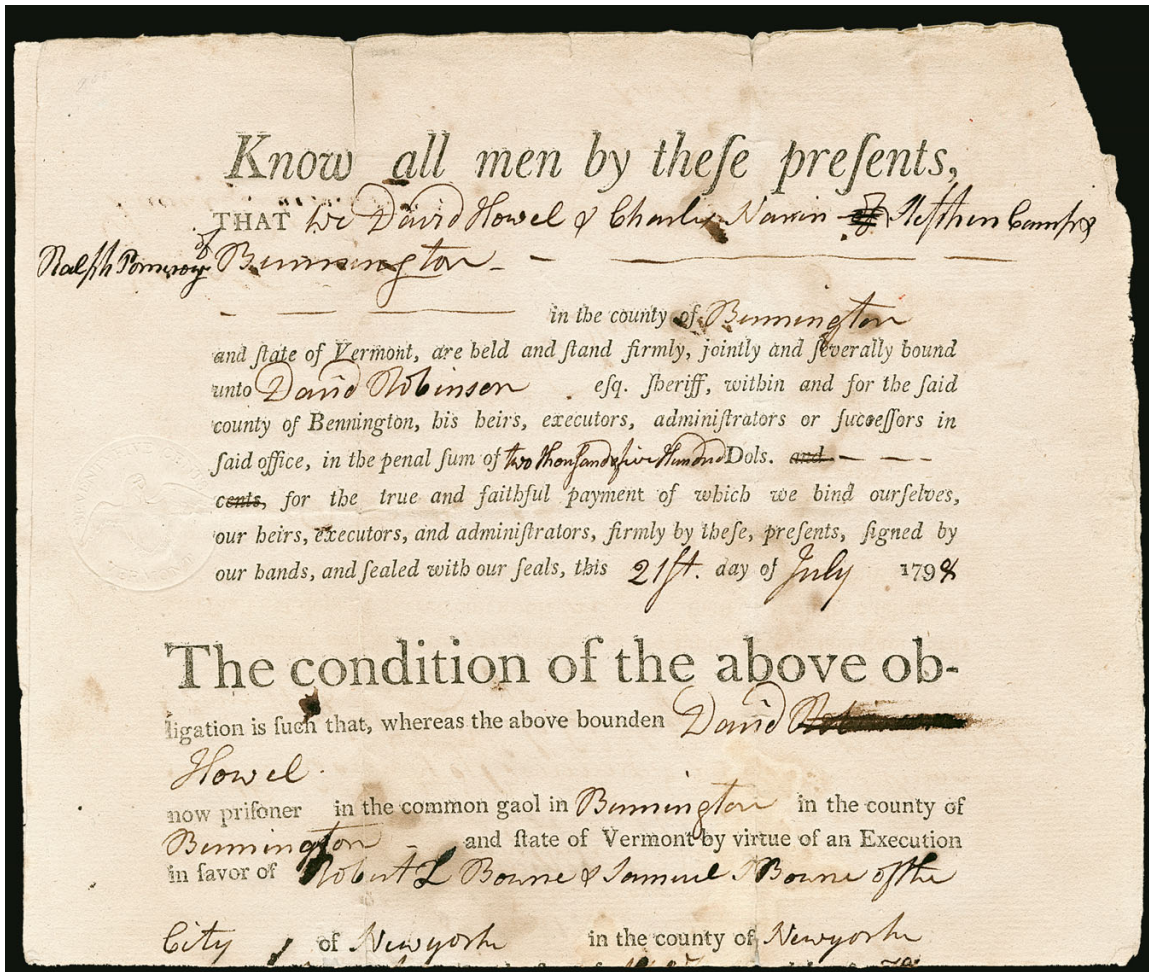 Know all men by theſe preſents,
THAT We David Howel & Charles Navin of Stephen Camp &
Ralph Pomeroy of Bennington
in the county of Bennington
and ſtate of Vermont, are held and ſtand firmly, jointly and ſeverally bound
unto David Robinson eſq. ſheriff, within and for the ſaid
county of Bennington, his heirs, executors, adminiſtrators or ſucceſſors in
ſaid office, in the penal ſum of two thousand & five Hundred Dols. and
cents, for the true and faithful payment of which we bind ourſelves,
our heirs, executors, and adminiſtrators, firmly by theſe, preſents, ſigned by
our hands, and ſealed with our ſeals, this 21st. day of July 1798
The condition of the above ob-
ligation is ſuch that, whereas the above bounden David
Howel.
now priſoner in the common gaol in Bennington in the county of
Bennington and ſtate of Vermont by virtue of an Execution
in favor of Robert L Bowne & Samuel Bowne of the
City of Newyork in the county of Newyork